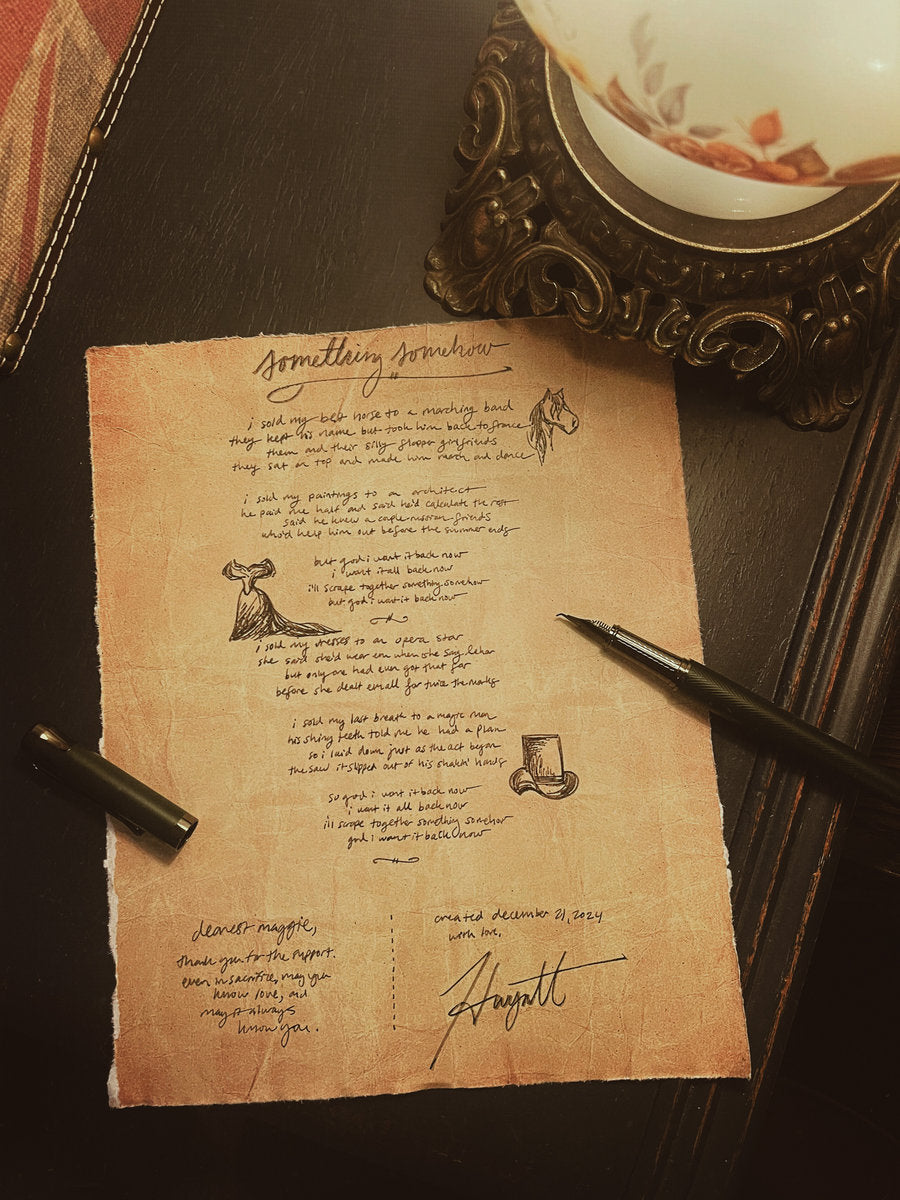 something somehow
i sold my best horse to a marching band
they kept his name but took him back to france
them and their silly flapper girlfriends
they sat on top and made him march and dance
i sold my paintings to an architect
he paid me half and said he'd calculate the rest
said he knew a couple russian friends
who'd help him out before the summer ends
but god i want it back now
i want it all back now
i'll scrape together something somehow
but god i want it back now
i sold my dresses to an opera star
she said she'd wear em when she sang lehar
but only one had even got that far
before she dealt em all for twice the marks
i sold my last breath to a magic man
his shiny teeth told me he had a plan
so i laid down just as the act began
the saw it slipped out of his shakin' hands
so god i want it back now
i want it all back now
i'll scrape together something somehow
god i want it back now
dearest maggie,
thank you for the support.
even in sacrifice, may you
know love, and
may it always
know you.
created december 21, 2024
with love,
Hayatt